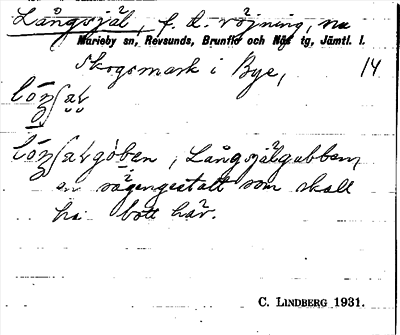 Långsjäl, f. d. röjning, nu
Marieby sn, Revsunds, Brunflo och Näs tg, Jämtl. l.
skogsmark i Bye, 14
Långsjälgubben,
en sägengestalt som skall
ha bott här.
C. LINDBERG 1931.